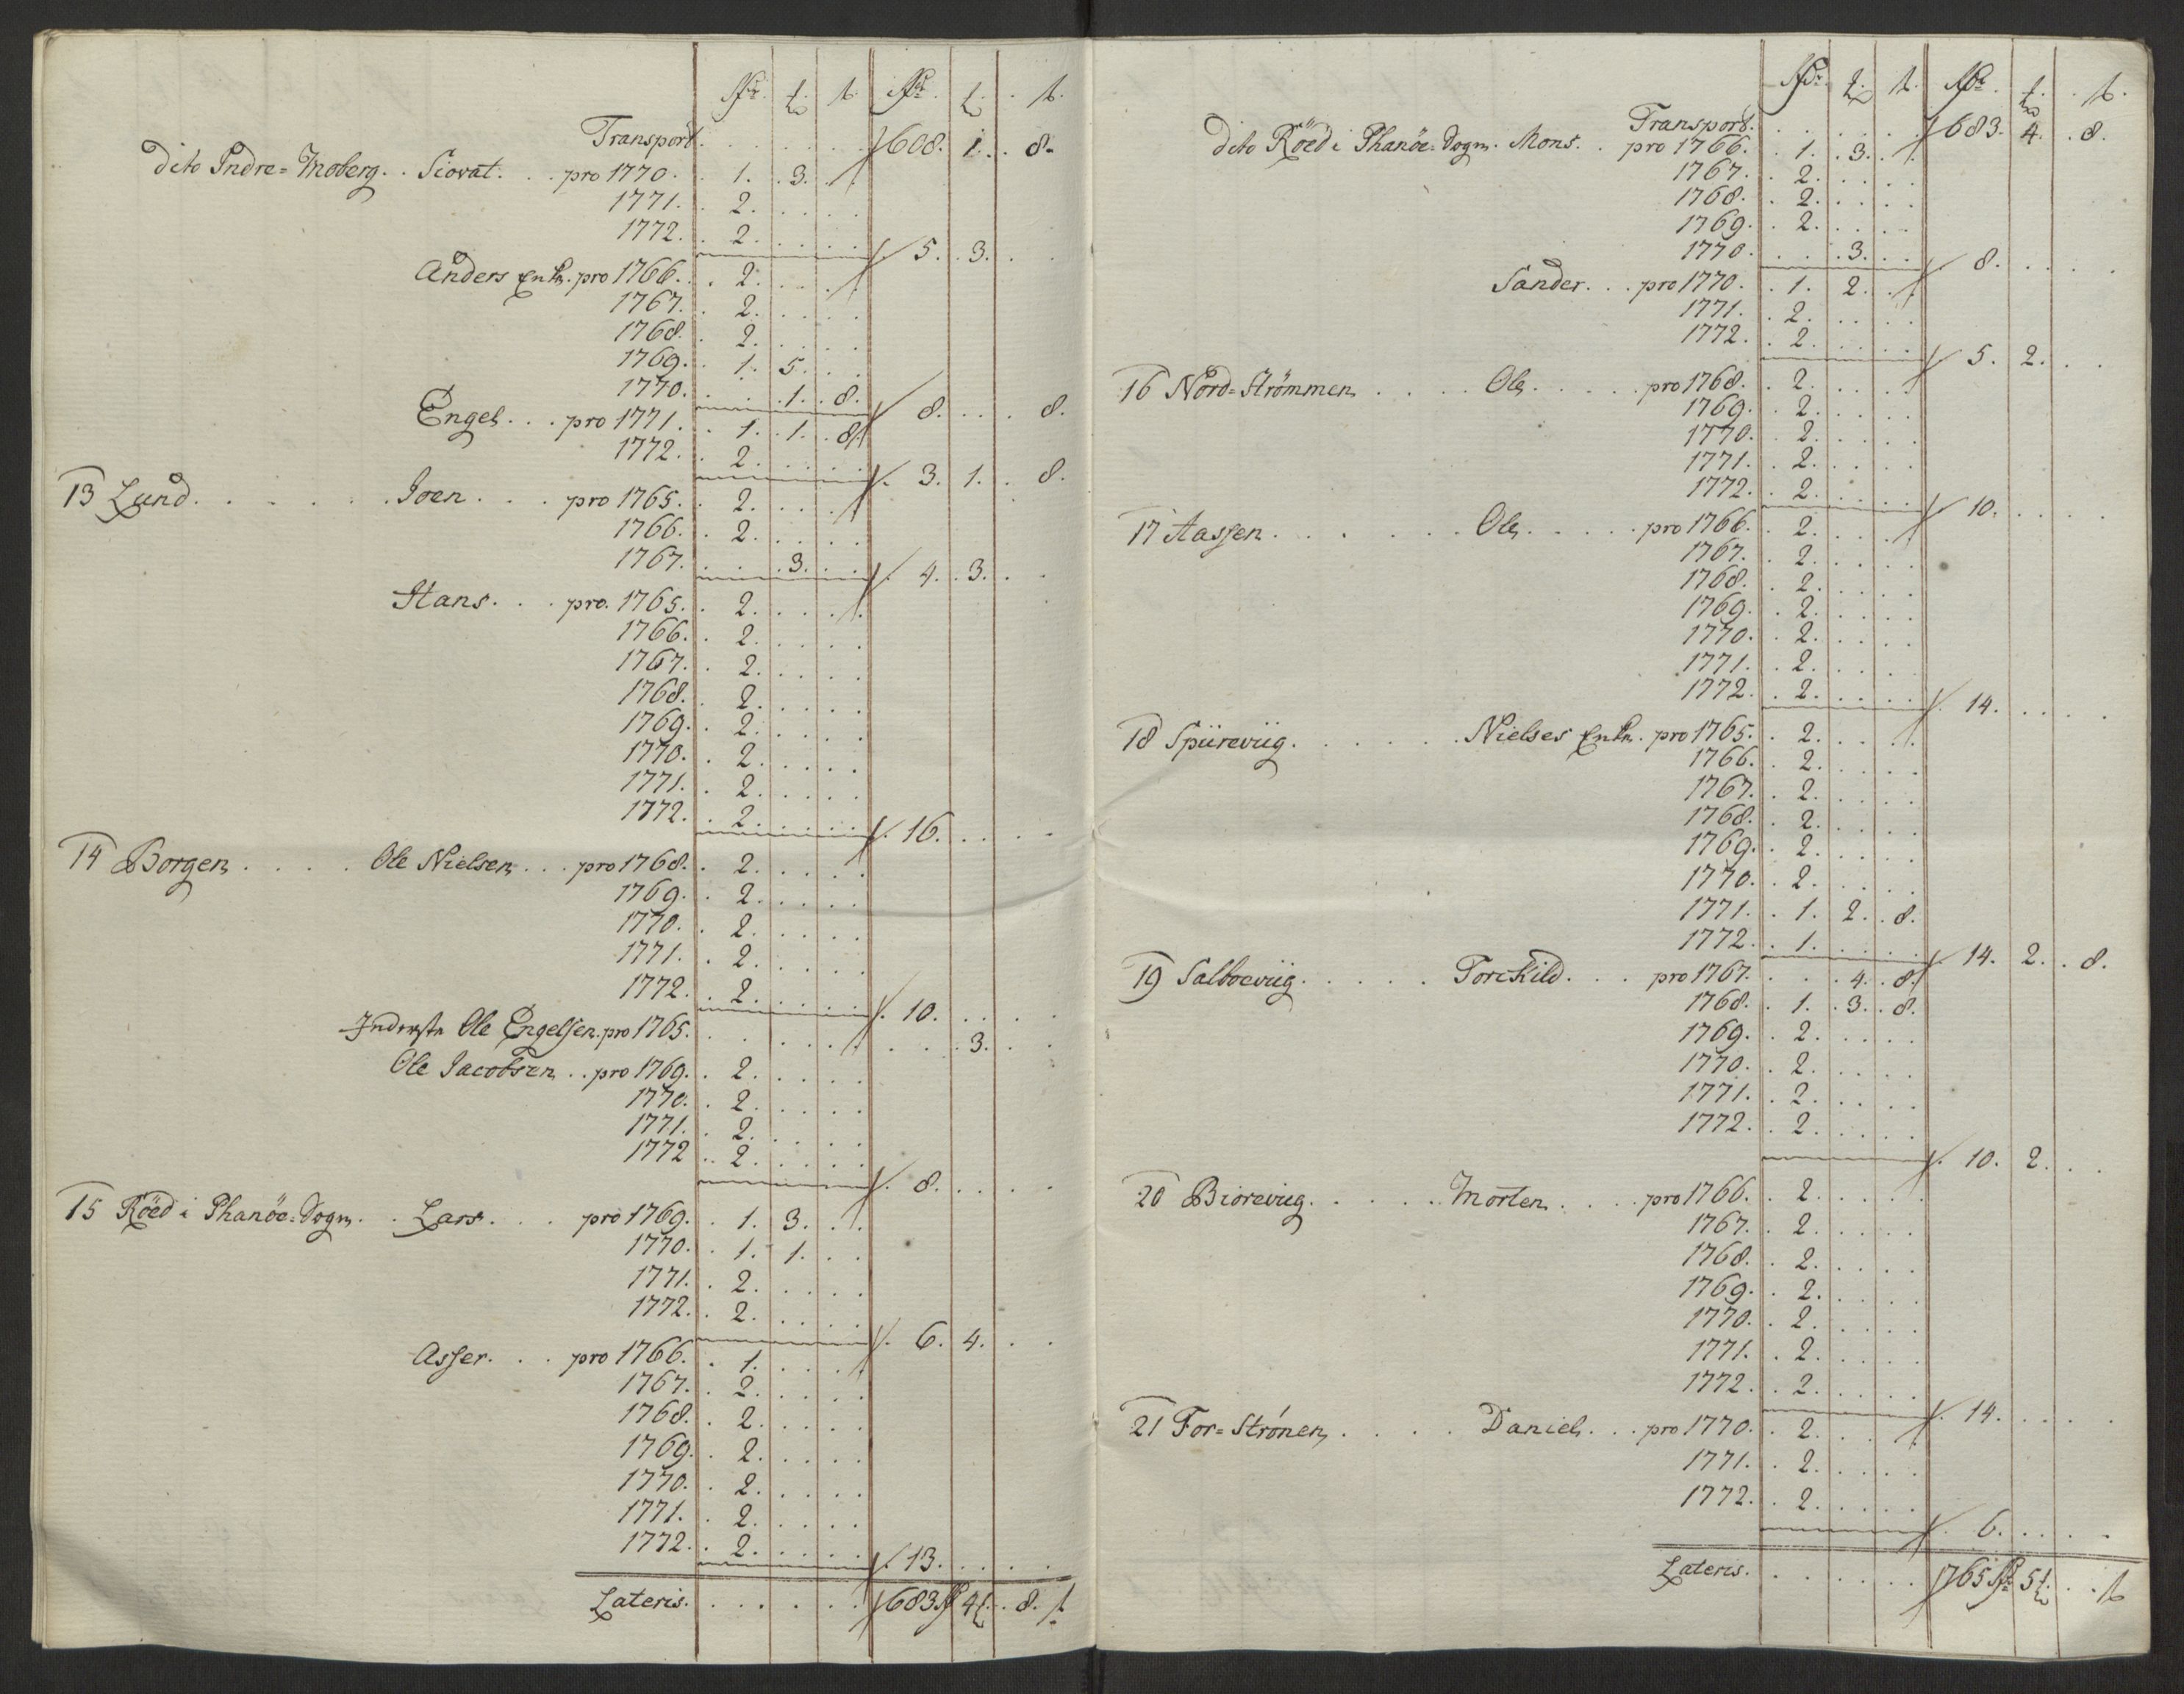 Rdr. ₰. ß. Rdr. ₰. ß.
Transport. . . . . . . 608. 1. 8.
dito Indre=Moberg. . Siovat. . . pro 1770. . 1. . 3. . .
1771. . 2. . . . .
1772. . 2. . . . . 5. . 3. . .
Anders Enke. pro 1766. . 2. . . . .
1767. . 2. . . . .
1768. . 2. . . . .
1769. . 1. 5. . .
1770. . . . 1. . 8. 8. . . . 8.
Engel. . . pro 1771. . 1. . 1. . 8.
1772. . 2. . . . . 3. 1. . 8.
13 Lund. . . . . . Joen. . . . pro 1765. . 2. . . . .
1766. . 2. . . . .
1767. . . . 3. . . 4. . 3. . .
Hans. . . pro. 1765. . 2. . . . .
1766. . 2. . . . .
1767. . 2. . . . .
1768. . 2. . . . .
1769. . 2. . . . .
1770. . 2. . . . .
1771. . 2. . . . .
1772. . 2. . . . . 16. . . . .
14 Borgen . . . . Ole Nielsen . . . pro 1768. . 2. . . . .
1769. . 2. . . . .
1770. . 2. . . . .
1771. . 2. . . . .
1772. . 2. . . . . 10. . . . .
Inderste Ole Engelsen. pro 1765. . . . . . . . . 3. . .
Ole Jacobsen . . pro 1769. . 2. . . . .
1770. . 2. . . . .
1771. . 2. . . . .
1772 . . 2. . . . . 8. . . . .
15 Röed i Phanöe=Sogn. . Lars. . . . pro 1769. . 1. 3. . .
1770. . 1. 1. . .
1771. . 2. . . . .
1772. . 2. . . . . 6. 4. . .
Asser. . . pro 1766. . 1. . . . .
1767. . 2. . . . .
1768. . 2. . . . .
1769. . 2. . . . .
1770. . 2. . . . .
1771. . 2. . . . .
1772. . 2. . . . . 13. . . . .
Lateris. . . . . . . 683 Rd 4 ₰. . 8. ß
Rdr. ₰. ß. Rdr. ₰. ß.
Transport. . . . . . . 683. 4. . 8.
dito Röed i Phanöe=Sogn. Mons. . pro 1766. . 1. . 3. . .
1767. . 2. . . . .
1768. . 2. . . . .
1769. . 2. . . . .
1770. . . . 3. . . 8. . . . .
Sander. . . pro 1770. . 1. 2. . .
1771. . 2. . . . .
1772. . 2. . . . . 5. 2. . .
16 Nord=Strömmen . . . . . Ole . . . . pro 1768. . 2. . . . .
1769. . 2. . . . .
1770. . 2. . . . .
1771. . 2. . . . .
1772. . 2. . . . . 10. . . . .
17 Aassen . . . . . . . Ole . . . . . pro 1766. . 2. . . . .
1767. . 2. . . . .
1768. . 2. . . . .
1769. . 2. . . . .
1770. . 2. . . . .
1771. . 2. . . . .
1772. . 2. . . . . 14. . . . .
18 Spiireviig. . . . . . . Nielses Enke. pro 1765. . 2. . . . .
1766. . 2. . . . .
1767. . 2. . . . .
1768. . 2. . . . .
1769. . 2. . . . .
1770. . 2. . . . .
1771. . 1. 2. . 8.
1772. . 1. . . . . 14. 2. . 8.
19 Salboeviig. . . . . . Torckild. . . . pro 1767. . . . 4. . 8.
1768. . 1. . 3. . 8.
1769. . 2. . . . .
1770. . 2. . . . .
1771. . 2. . . . .
1772. . 2. . . . . 10. 2. . .
20 Bioreviig. . . . . . Morten . . . . pro 1766. . 2. . . . .
1767. . 2. . . . .
1768. . 2. . . . .
1769. . 2. . . . .
1770. . 2. . . . .
1771. . 2. . . . .
1772. . 2. . . . . 14. . . . .
21 For=Strönen, . . . . Daniel. . . pro 1770. . 2. . . . .
1771. . 2. . . . .
1772. . 2. . . . . 6. . . . .
Lateris. . . . . . . 765 Rdr 5 ₰. . . ß